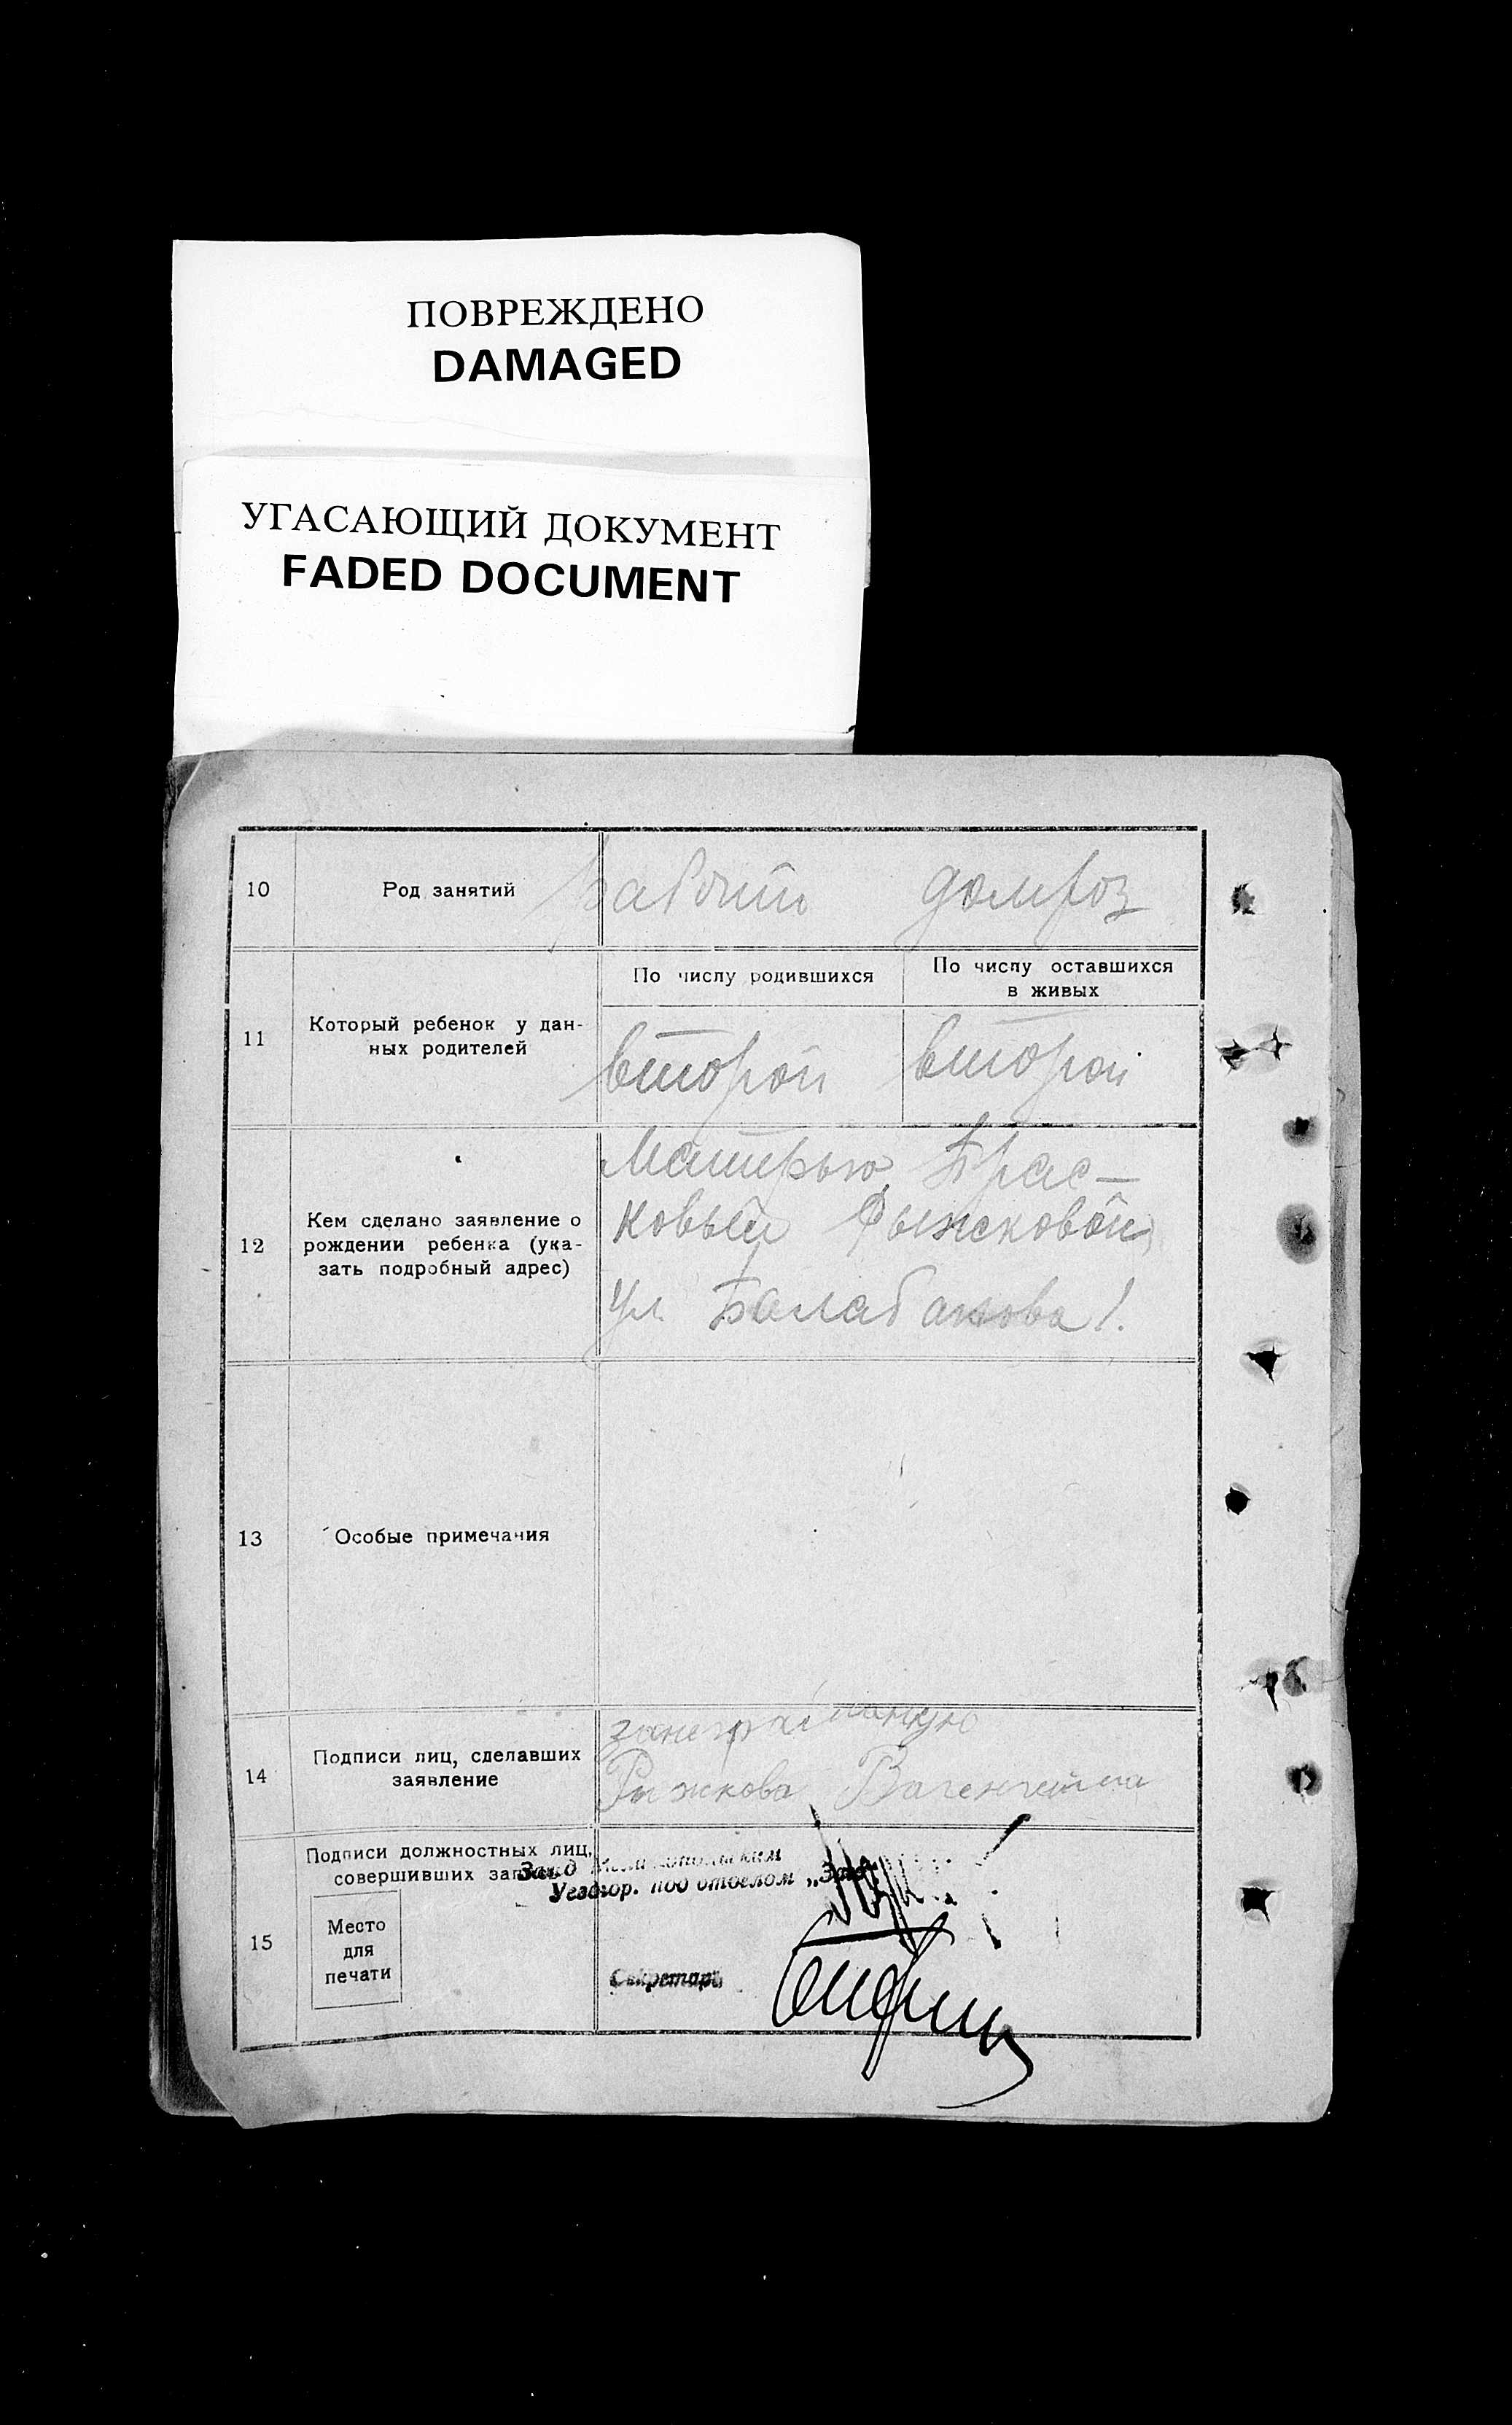 ПОВРЕЖДЕНО
DAMAGED
УГАСАЮЩИЙ ДОКУМЕНТ
FADED DOCUMENT
10
Род занятий
Рабочий
домхоз
11
Который ребенок у дан-
ных родителей
По числу родившихся
По числу оставшихся
в живых
второй
второй
12
Кем сделано заявление о
рождении ребенка (ука-
зать подробный адрес)
Матерью Прас-
ковьей Рыжсковой
Ул. Балабанова 1.
13
Особые примечания
14
Подписи лиц, сделавших
заявление
Рыжкова
15
Подписи должностных лиц,
совершивших запись
Место
для
печати
Завед Мелитопольским
Уездгор. под отделом „Загс"
Секретарь